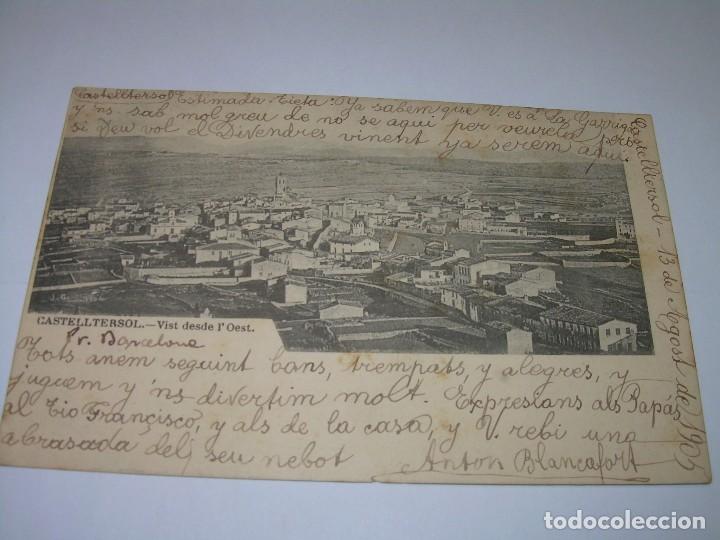 Castelltersol Estimada Tieta: Ya sabem que V. es á La Garriga
y 'ns sab mol greu de no se aqui per veurela, pero
si Deu vol el Divendres vinent ya serem aqui.
Castelltersol - 13 de Agost de 1905
CASTELLTERSOL.—Vist desde l'Oest.
Pr. Barcelona
Tots anem seguint bons, trempats, y alegres, y
juguem y 'ns divertim molt. Expresians als Papás
al Tio Françisco, y als de la casa, y V. rebi una
abrasada del seu nebot Anton Blancafort
todocoleccion.net